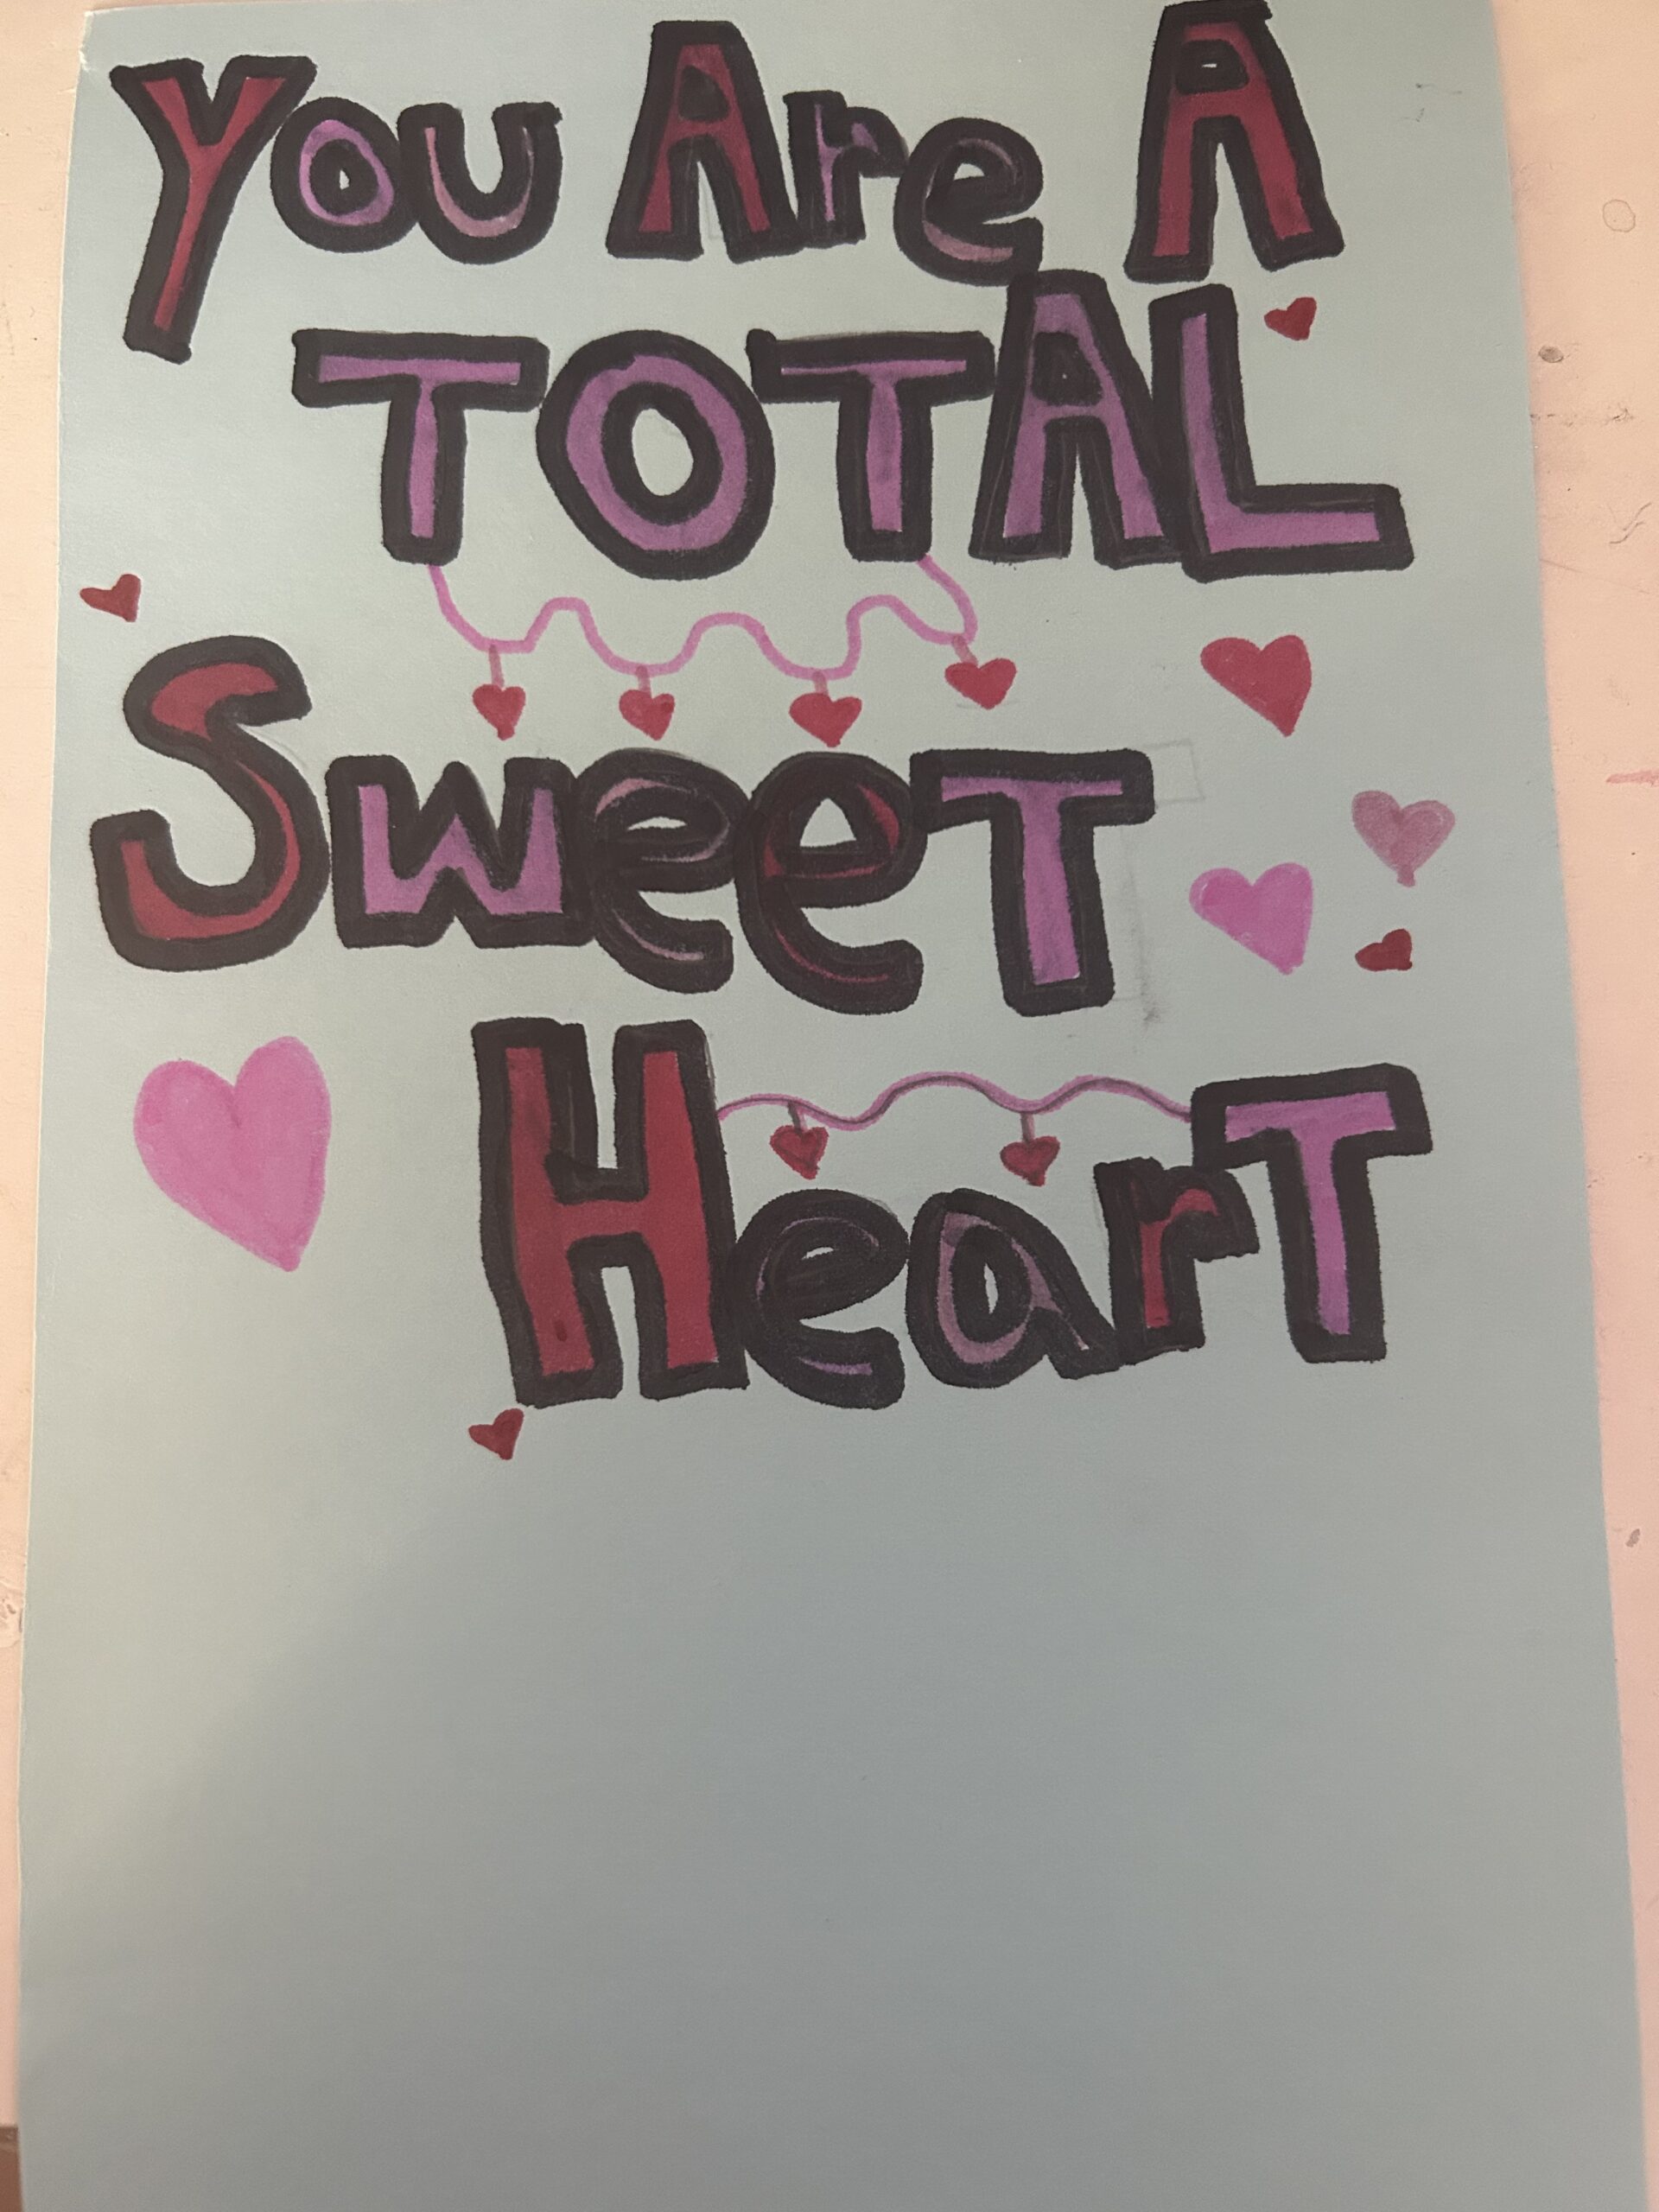 You Are A
TOTAL
SweeT
HearT